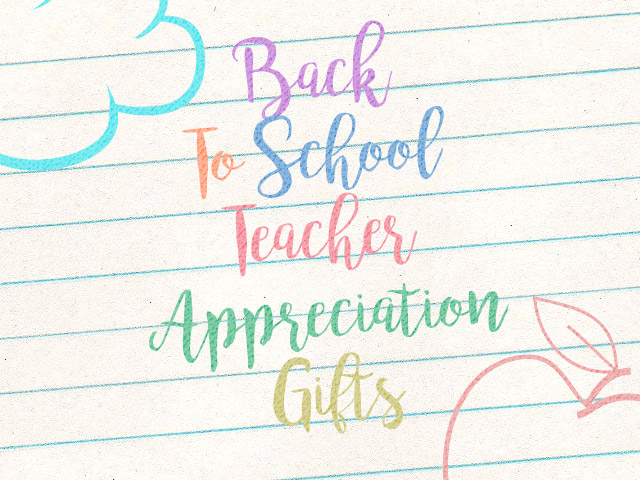 Back
To School
Teacher
Appreciation
Gifts